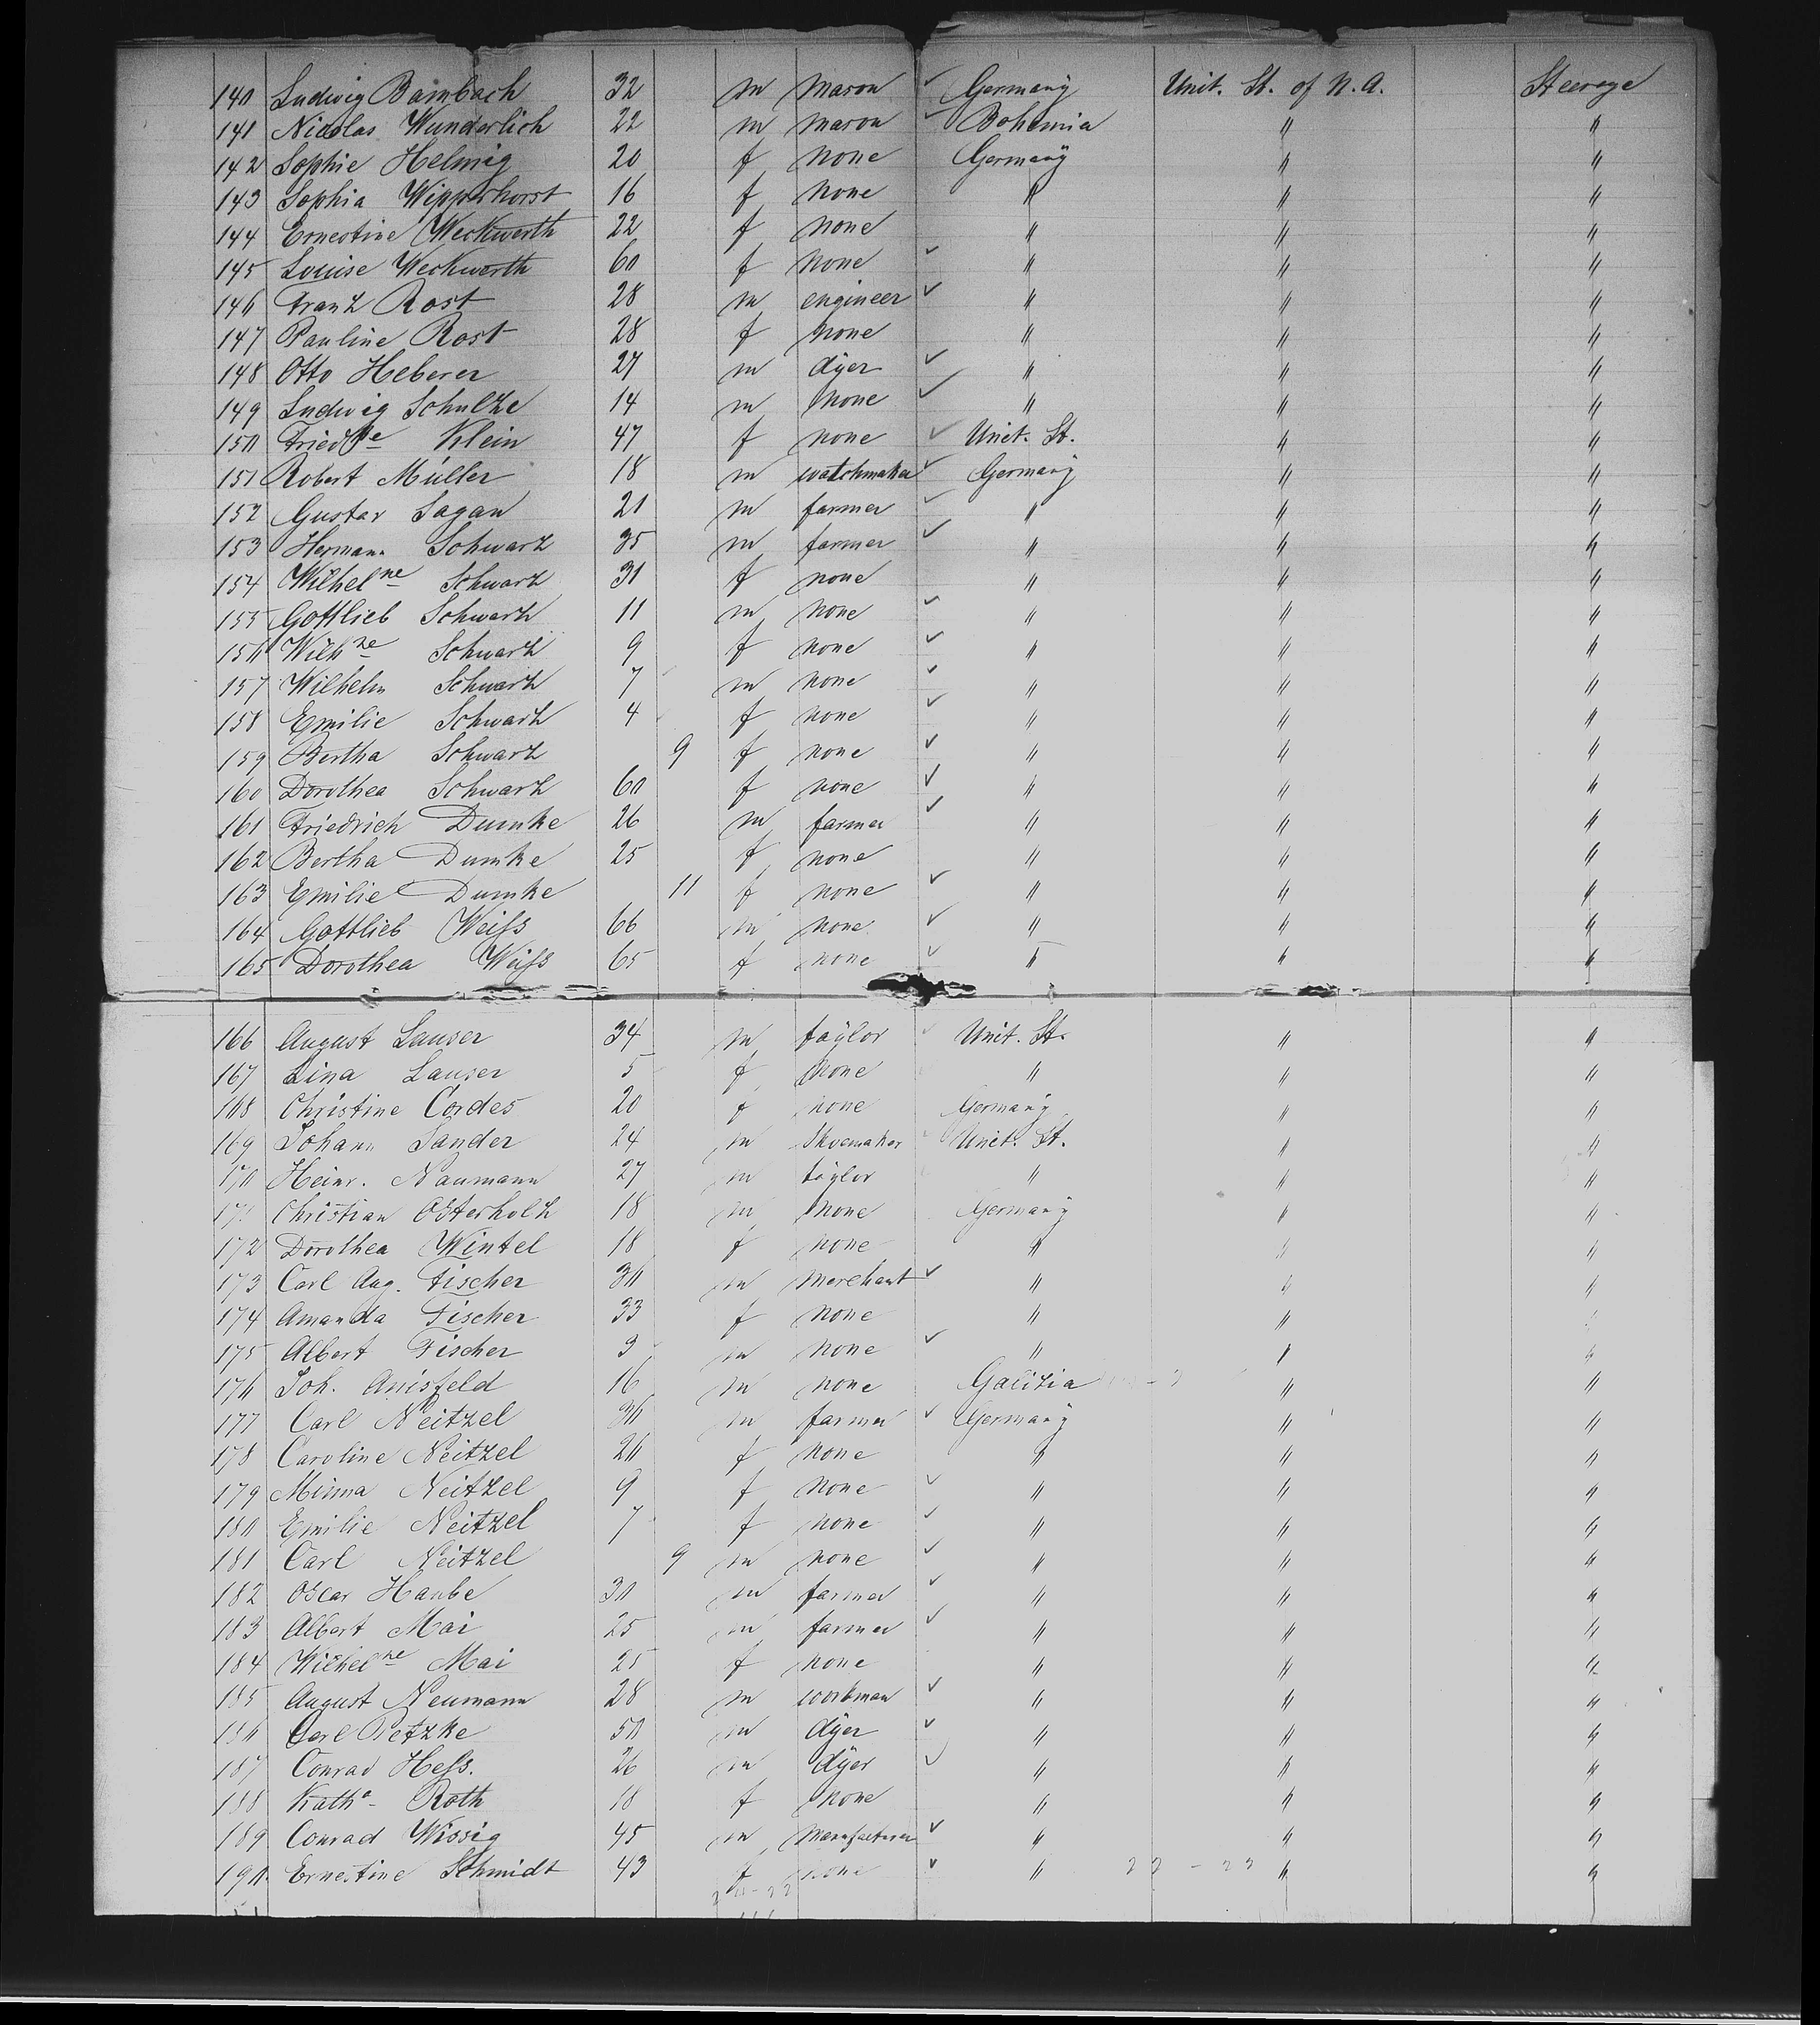 140 Ludwig Bambach 32 m mason ✓ Germany Unit. St. of N.A. Steerage
141 Nicolas Wunderlich 22 m mason ✓ Bohemia " "
142 Sophie Helmig 20 f none Germany " "
143 Sophia Wipperhorst 16 f none " " "
144 Ernestine Weckwerth 22 f none " " "
145 Louise Weckwerth 60 f none ✓ " " "
146 Franz Rost 28 m engineer ✓ " " "
147 Pauline Rost 28 f none " " "
148 Otto Heberer 27 m dyer ✓ " " "
149 Ludwig Schultze 14 m none ✓ " " "
150 Friedke Klein 47 f none ✓ Unit. St. " "
151 Robert Müller 18 m watchmaker ✓ Germany " "
152 Gustav Sagan 21 m farmer ✓ " " "
153 Hermann Schwarz 35 m farmer ✓ " " "
154 Wilhelne Schwarz 31 f none " " "
155 Gottlieb Schwarz 11 m none ✓ " " "
156 Wilhne Schwarz 9 f none ✓ " " "
157 Wilhelm Schwarz 7 m none ✓ " " "
158 Emilie Schwarz 4 f none ✓ " " "
159 Bertha Schwarz 9 f none ✓ " " "
160 Dorothea Schwarz 60 f none ✓ " " "
161 Friedrich Dumke 26 m farmer ✓ " " "
162 Bertha Dumke 25 f none " " "
163 Emilie Dumke 11 f none ✓ " " "
164 Gottlieb Weiſs 66 m none ✓ " " "
165 Dorothea Weiſs 65 f none ✓ " " "
166 August Lauser 34 m taylor ✓ Unit. St. " "
167 Lina Lauser 5 f none " " "
168 Christine Cordes 20 f none Germany " "
169 Johann Sander 24 m Shoemaker Unit. St. " "
170 Heinr. Naumann 27 m taylor " " "
171 Christian Osterholz 18 m none Germany " "
172 Dorothea Wintel 18 f none " " "
173 Carl Aug. Fischer 36 m merchant ✓ " " "
174 Amanda Fischer 33 f none " " "
175 Albert Fischer 3 m none ✓ " " "
176 Joh. Anisfeld 16 m none Galizia " "
177 Carl Neitzel 36 m farmer ✓ Germany " "
178 Caroline Neitzel 26 f none " " "
179 Minna Neitzel 9 f none ✓ " " "
180 Emilie Neitzel 7 f none ✓ " " "
181 Carl Neitzel 9 m none ✓ " " "
182 Oscar Haube 30 m farmer ✓ " " "
183 Albert Mai 25 m farmer ✓ " " "
184 Wilhelne Mai 25 f none " " "
185 August Neumann 28 m workman ✓ " " "
186 Carl Petzke 50 m dyer ✓ " " "
187 Conrad Heſs. 26 m dyer ✓ " " "
188 Katha Roth 18 f none " " "
189 Conrad Wissig 45 m Manufacturer ✓ " " "
190 Ernestine Schmidt 43 f none ✓ " " "